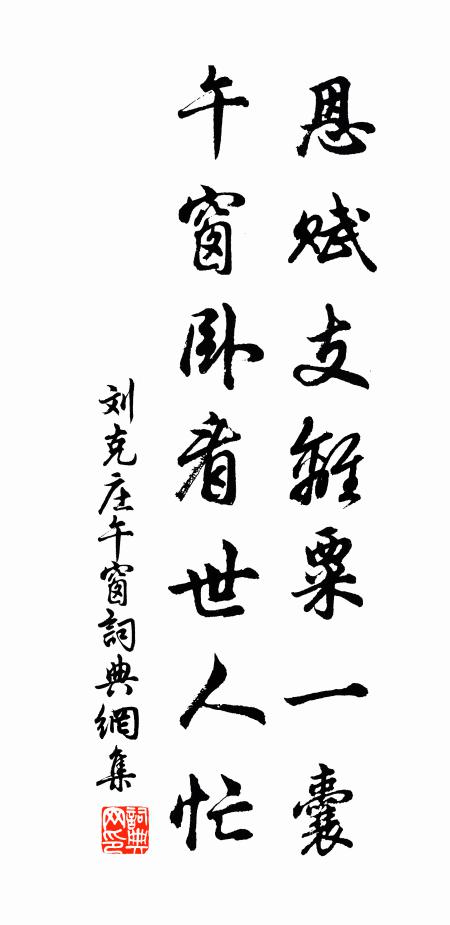 恩赋支離粟一囊
午窗卧看世人忙
刘克庄午窗詞典網集
詞典网印